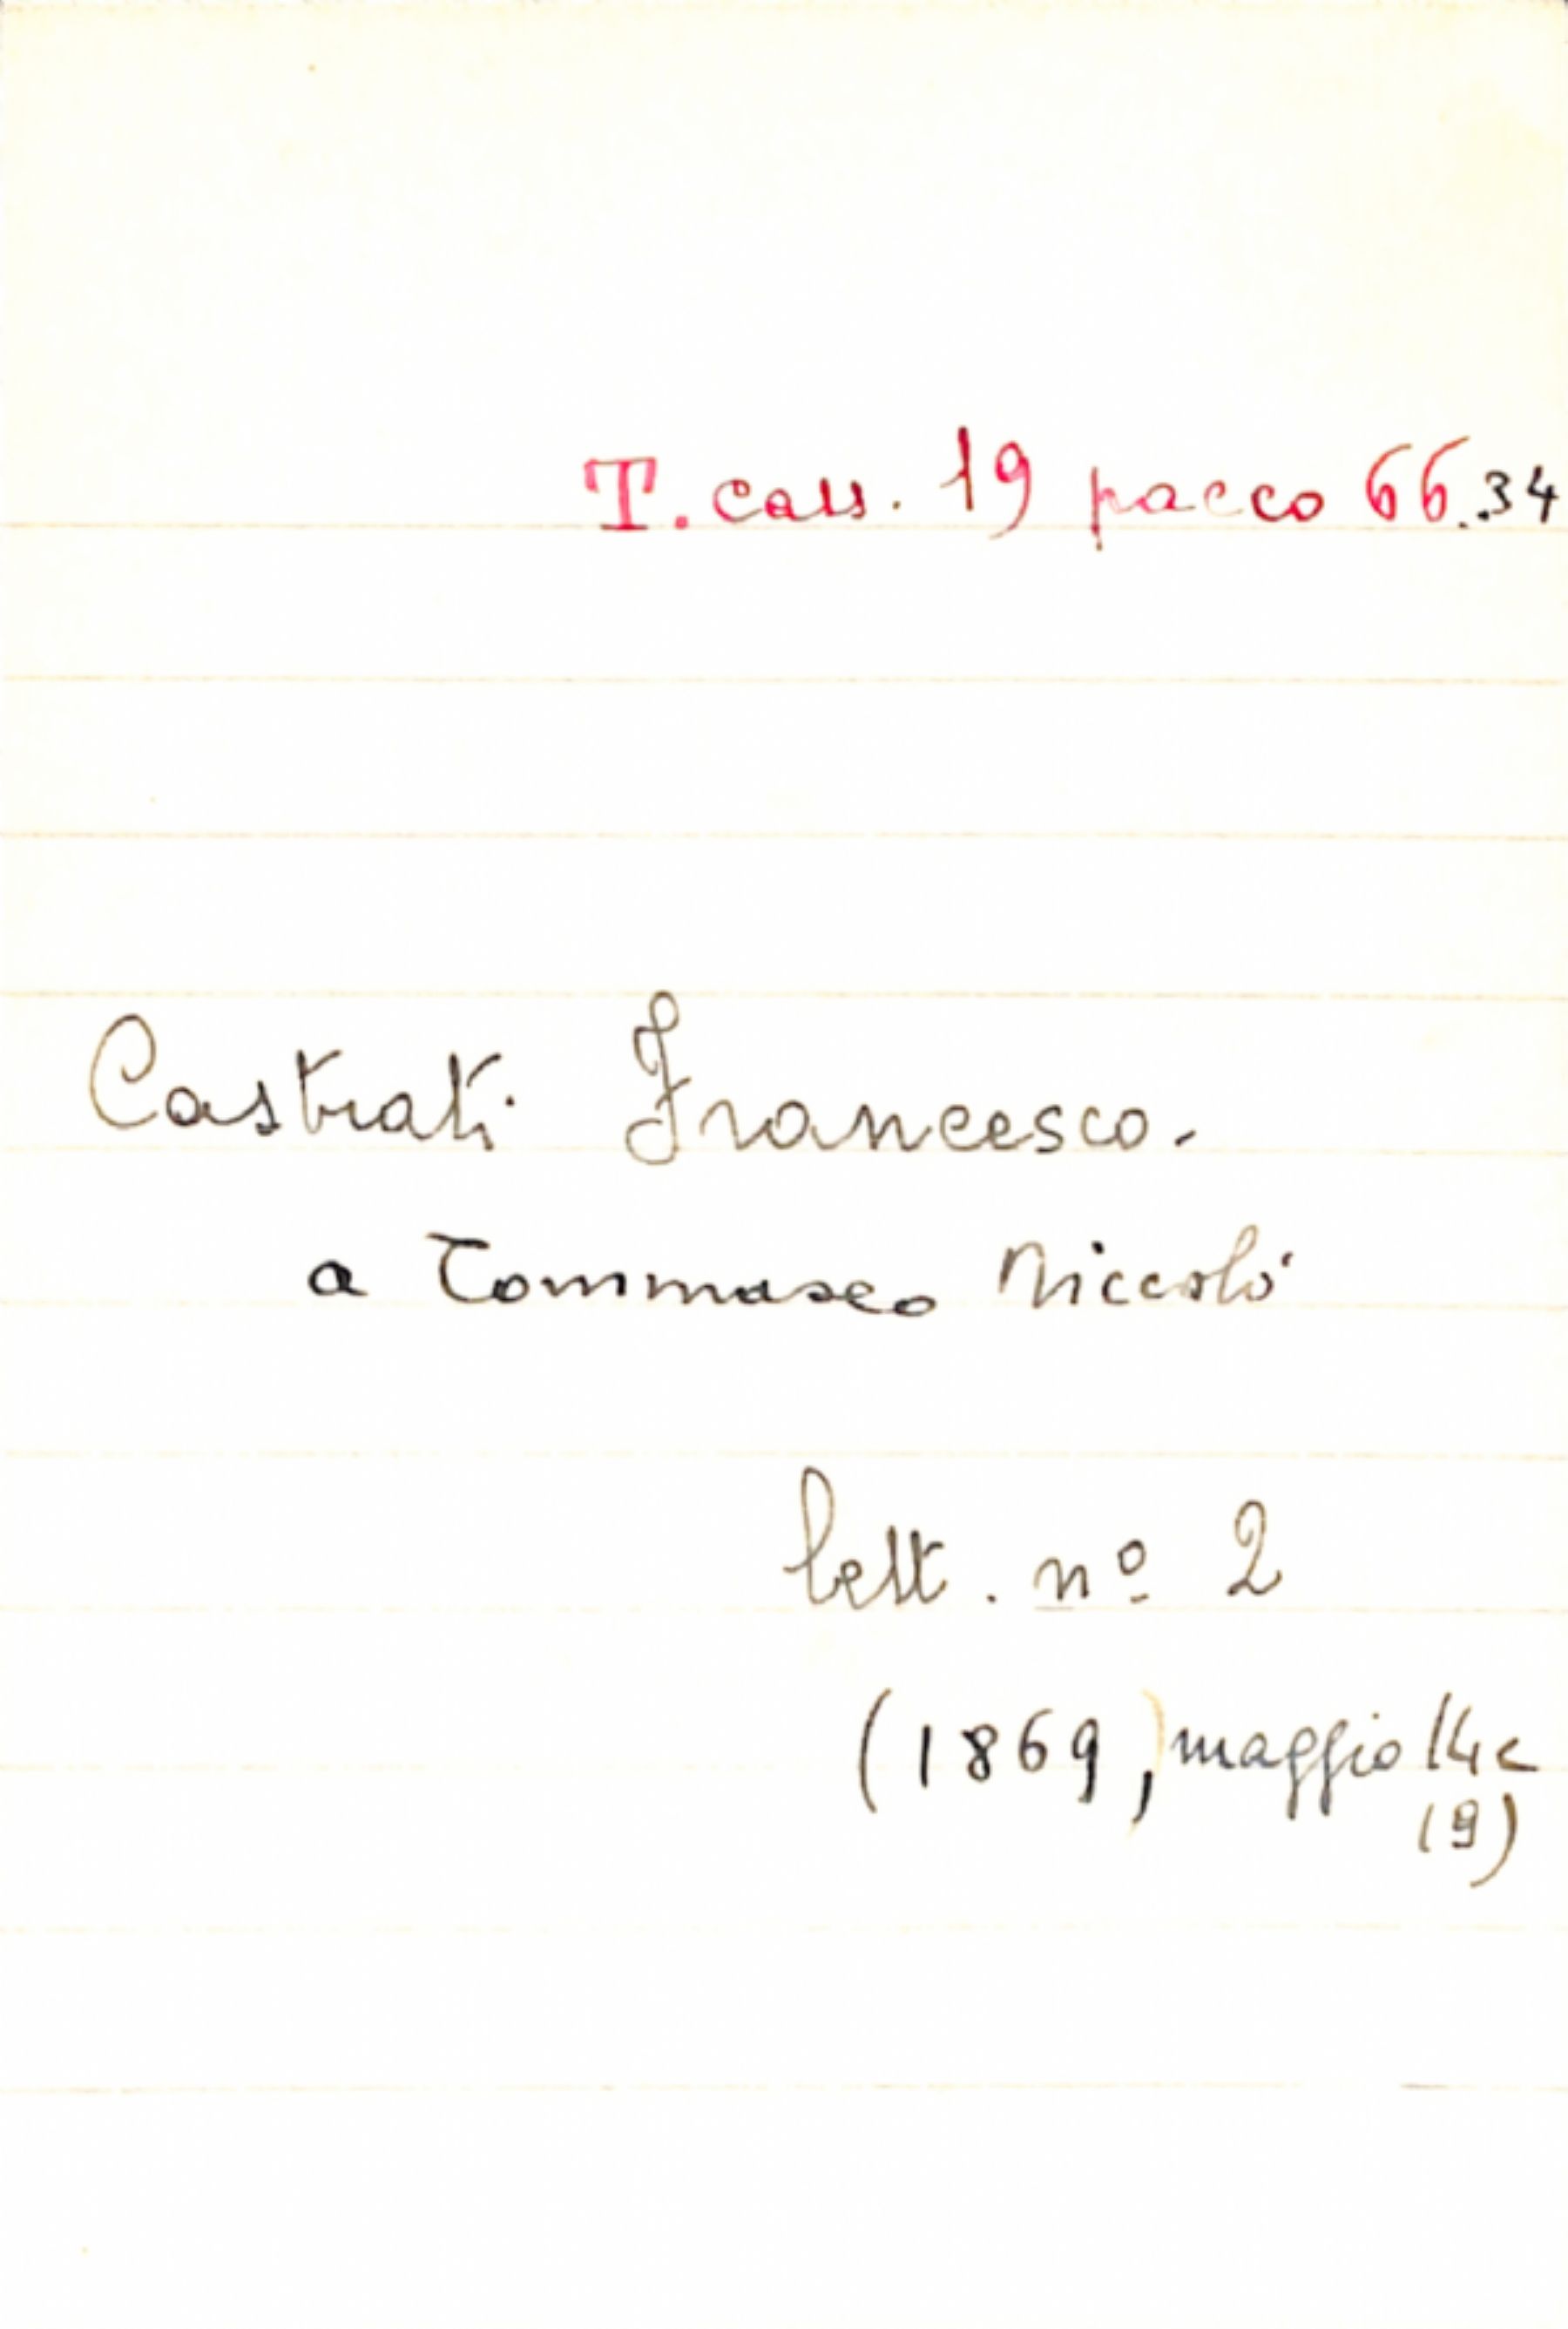 T. cass. 19 pacco 66.34
Castrati Francesco.
a Tommaseo Niccolò
lett. nº 2
(1869, maggio 14 e
19)